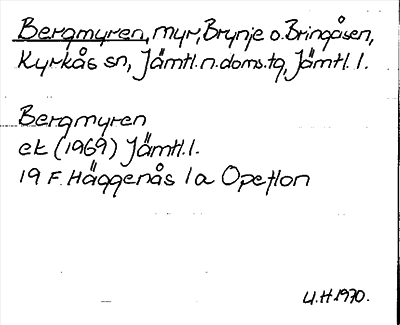 Bergmyren, myr, Brynje o. Bringåsen,
Kyrkås sn, Jämtl. n. doms. tg, Jämtl. l.
Bergmyren
ek (1969) Jämtl. l.
19 F. Häggenås 1a Opetlon
U.H 1970.